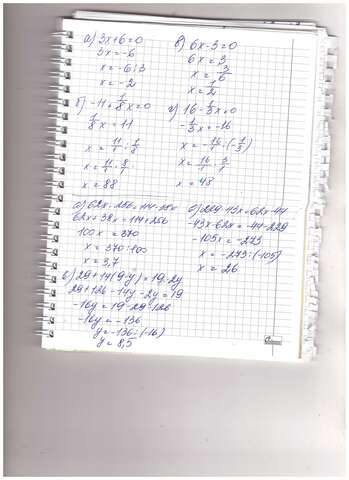 а) 3x+6=0
3x=-6
x=-6:3
x=-2
в) 6x-3=0
6x=3
x=3/6
x=1/2
б) -11+1/8x=0
1/8x=11
x=11/1:1/8
x=11/1·8/1
x=88
г) 16-1/3x=0
-1/3x=-16
x=-16/1:(-1/3)
x=16/1·3/1
x=48
а) 62x-256=114-38x
62x+38x=114+256
100x=370
x=370:100
x=3,7
б) 229-43x=62x-44
-43x-62x=-44-229
-105x=-273
x=-273:(-105)
x=26
в) 29+14(9-y)=19+2y
29+126-14y-2y=19
-16y=19-29-126
-16y=-136
y=-136:(-16)
y=8,5